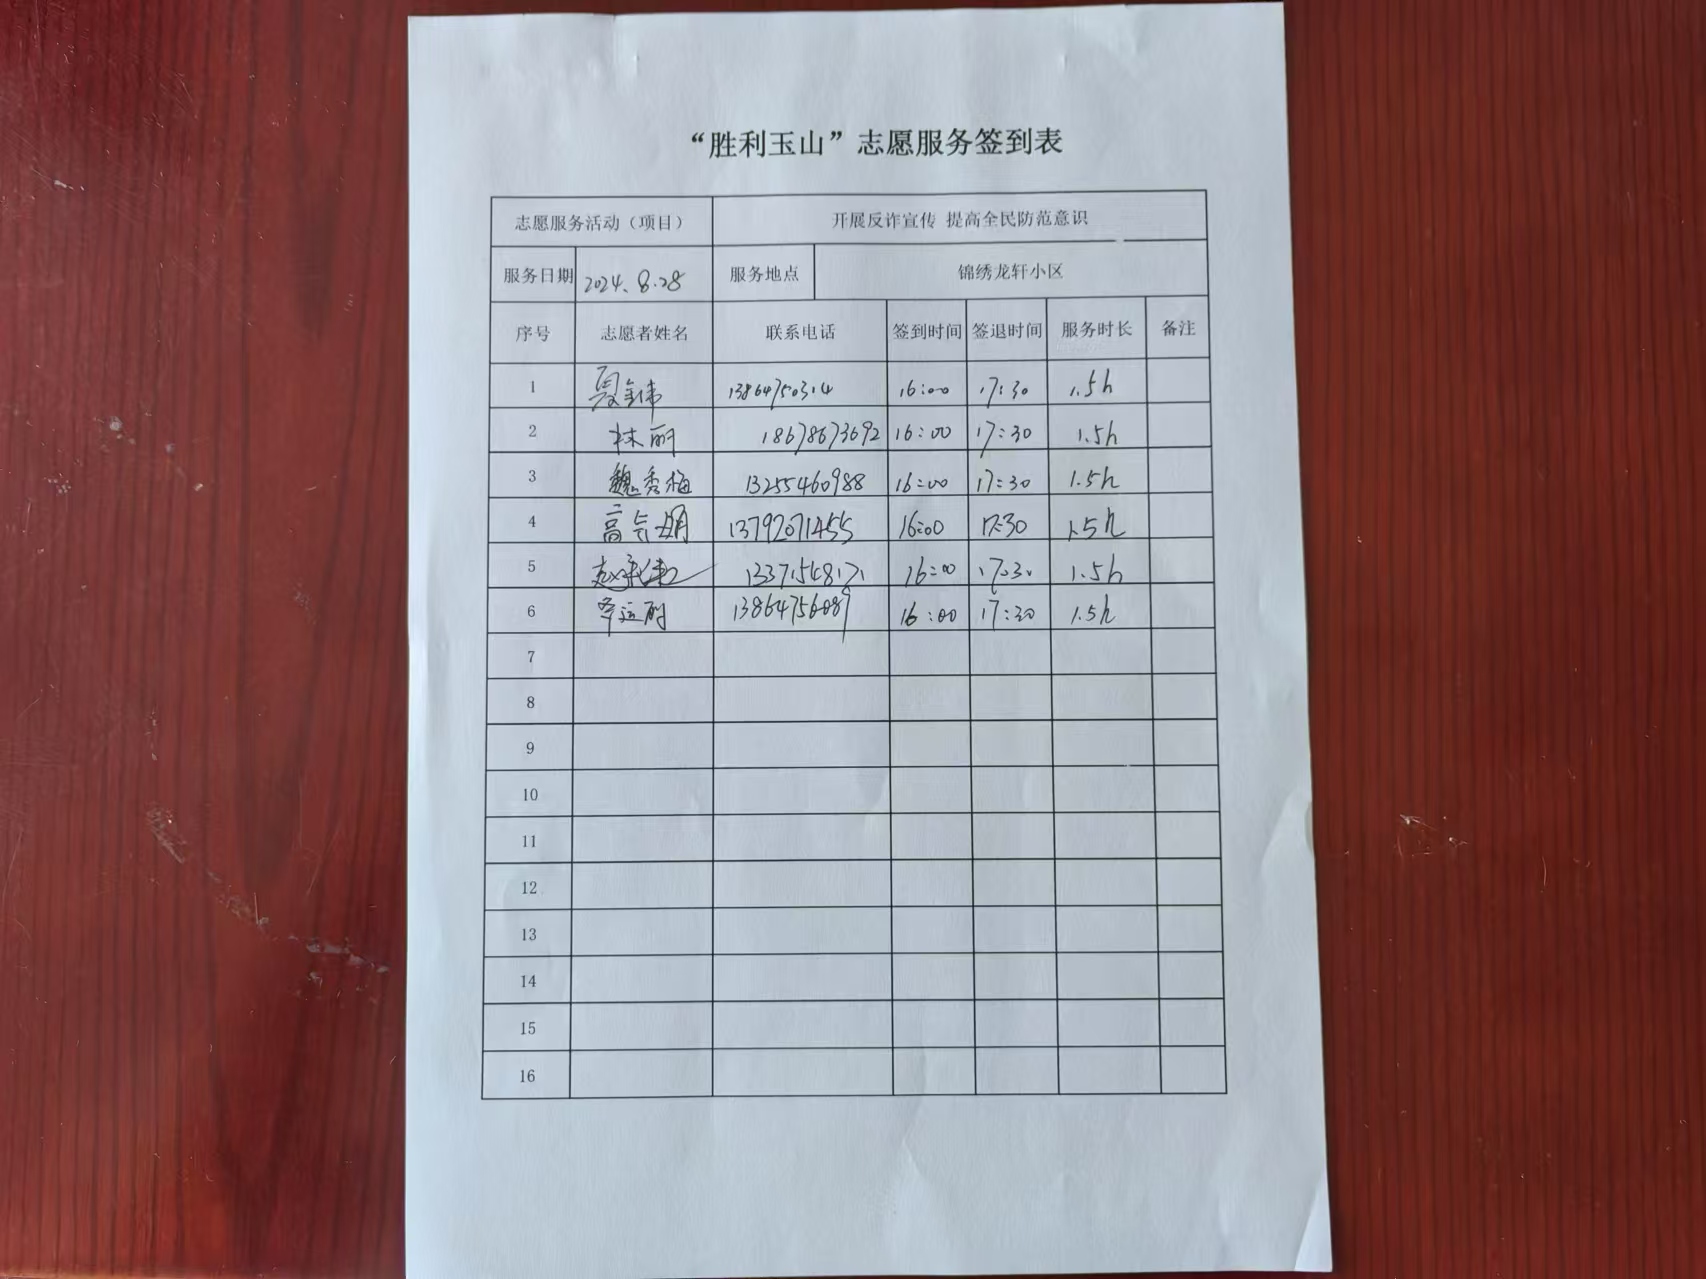 “胜利玉山”志愿服务签到表
志愿服务活动（项目） 开展反诈宣传 提高全民防范意识
服务日期 2024.8.28 服务地点 锦绣龙轩小区
序号 志愿者姓名 联系电话 签到时间 签退时间 服务时长 备注
1 13864750314 16:00 17:30 1.5h
2 林丽 18678673692 16:00 17:30 1.5h
3 魏秀梅 13255460988 16:00 17:30 1.5h
4 高 13792071455 16:00 17:30 1.5h
5 赵 13371548171 16:00 17:30 1.5h
6 13864756089 16:00 17:30 1.5h
7
8
9
10
11
12
13
14
15
16